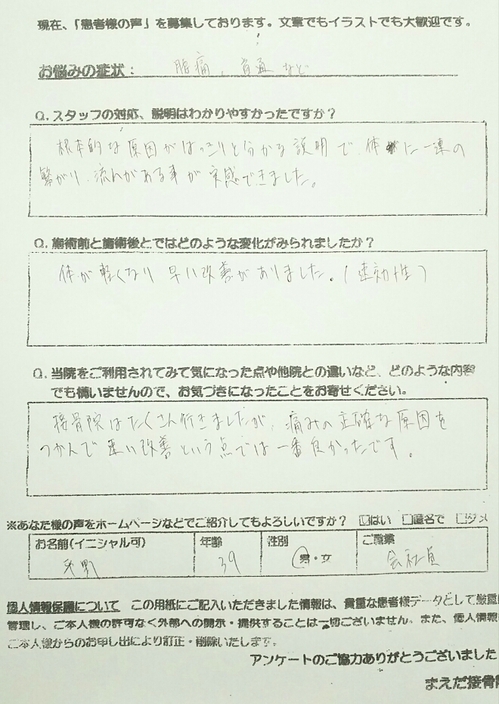 現在、「患者様の声」を募集しております。文章でもイラストでも大歓迎です。
お悩みの症状： 腰痛、首 など
Q.スタッフの対応、説明はわかりやすかったですか？
根本的な原因がはっきりと分かる説明で、体に一連の
繋がり、流れがある事が実感できました。
Q.施術前と施術後とではどのような変化がみられましたか？
体が軽くなり 早い改善がありました。(速効性)
Q.当院をご利用されてみて気になった点や他院との違いなど、どのような内容
でも構いませんので、お気づきになったことをお寄せください。
接骨院はたくさん行きましたが、痛みの正確な原因を
つかんで 早い改善という点では一番良かったです。
※あなた様の声をホームページなどでご紹介してもよろしいですか？ ☑はい □匿名で □ダメ
お名前(イニシャル可) 年齢 性別 ご職業
39 男・女 会社員
個人情報保護について この用紙にご記入いただきました情報は、貴重な患者様データとして厳重に
管理し、ご本人様の許可なく外部への開示・提供することは一切ございません。また、個人情報
ご本人様からのお申し出により訂正・削除いたします。
アンケートのご協力ありがとうございました
まえだ接骨院